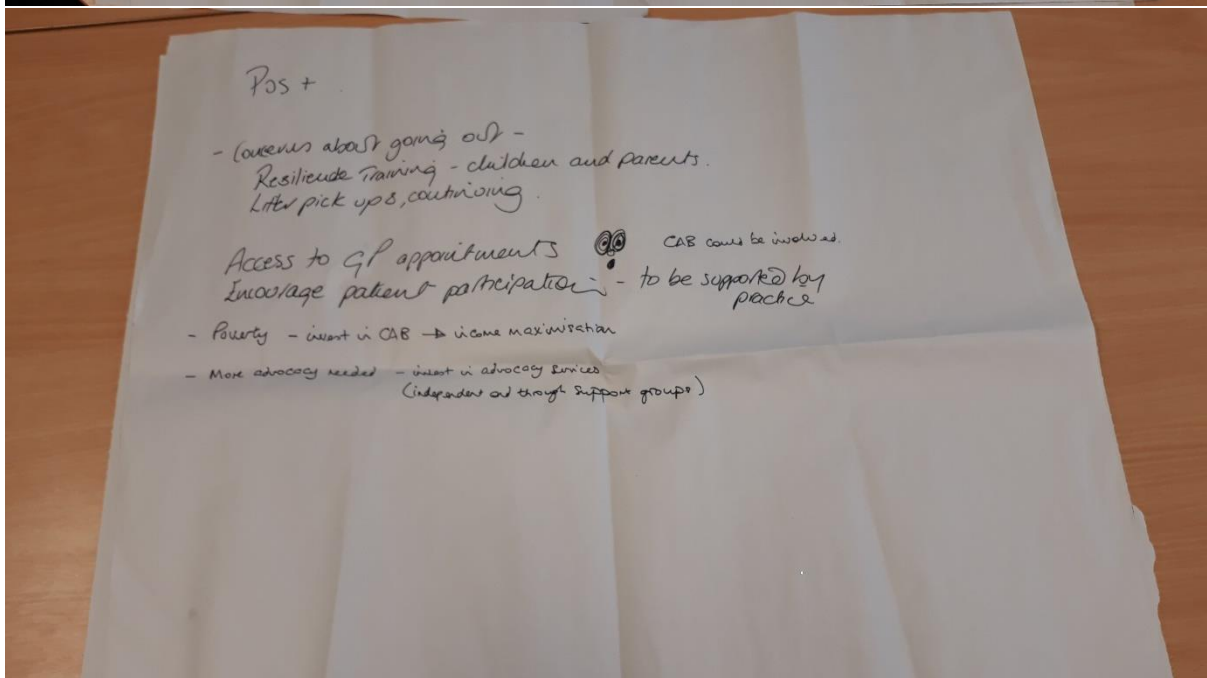 Pos +
- Concerns about going out -
Resilience Training - children and parents.
Litter pick ups, continuing.
Access to GP appointments
CAB could be involved.
Encourage patient participation - to be supported by
practice
- Poverty - invest in CAB → income maximisation
- More advocacy needed - invest in advocacy services
(independent and through support groups)